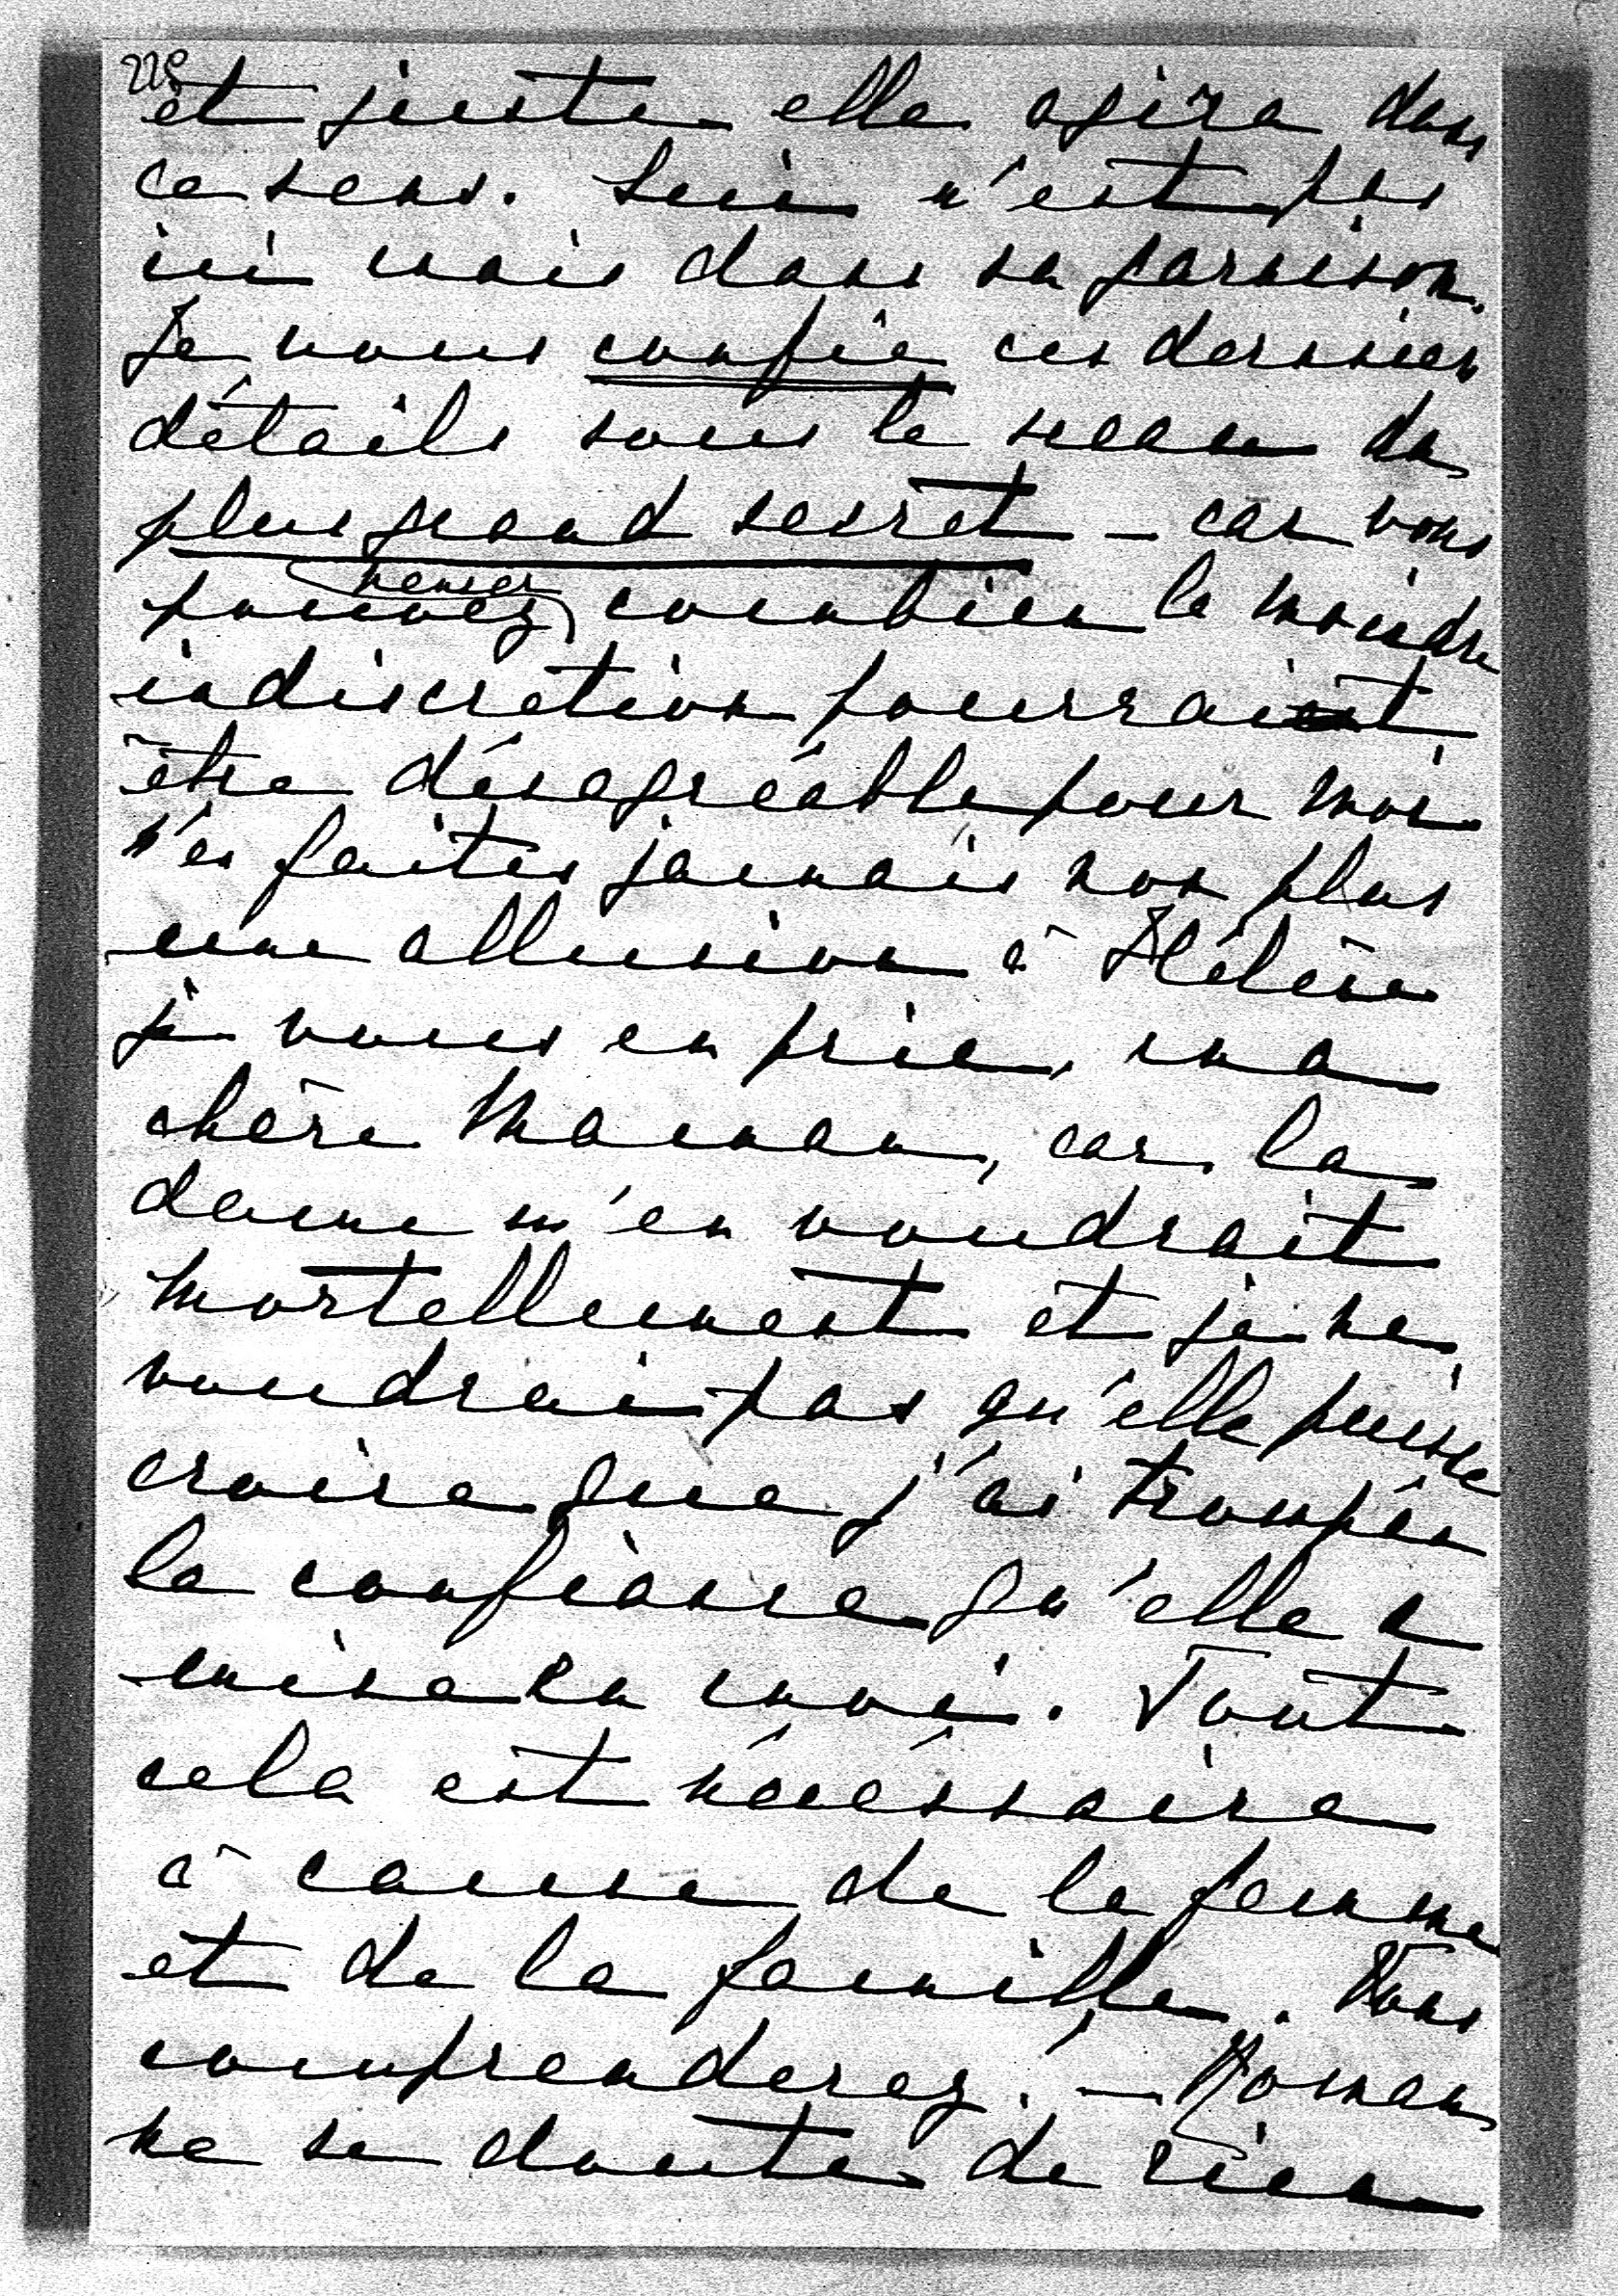 228
et juste elle agira dans
ce sens. Lui n'est pas
ici mais dans sa garnison.
Je vous confie ces derniers
détails sous le sceau du
plus grand secret – car vous
pouvez penser combien la moindre
indiscrétion pourrait
être désagréable pour moi
n'en faites jamais non plus
une allusion à Hélène
je vous en prie, ma
chère Maman, car la
dame m'en voudrait
mortellement et je ne
voudrais pas qu'elle puisse
croire que j'ai trompée
la confiance qu'elle a
mise en moi. Tout
cela est nécéssaire
à cause de la femme
et de la famille. Vous
comprenderez! – Roman
ne se doute de rien